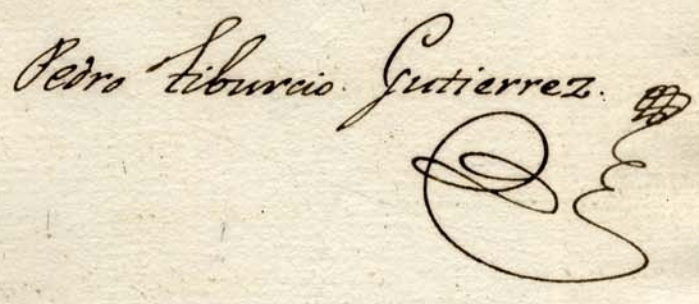 Pedro Tiburcio Gutierrez.